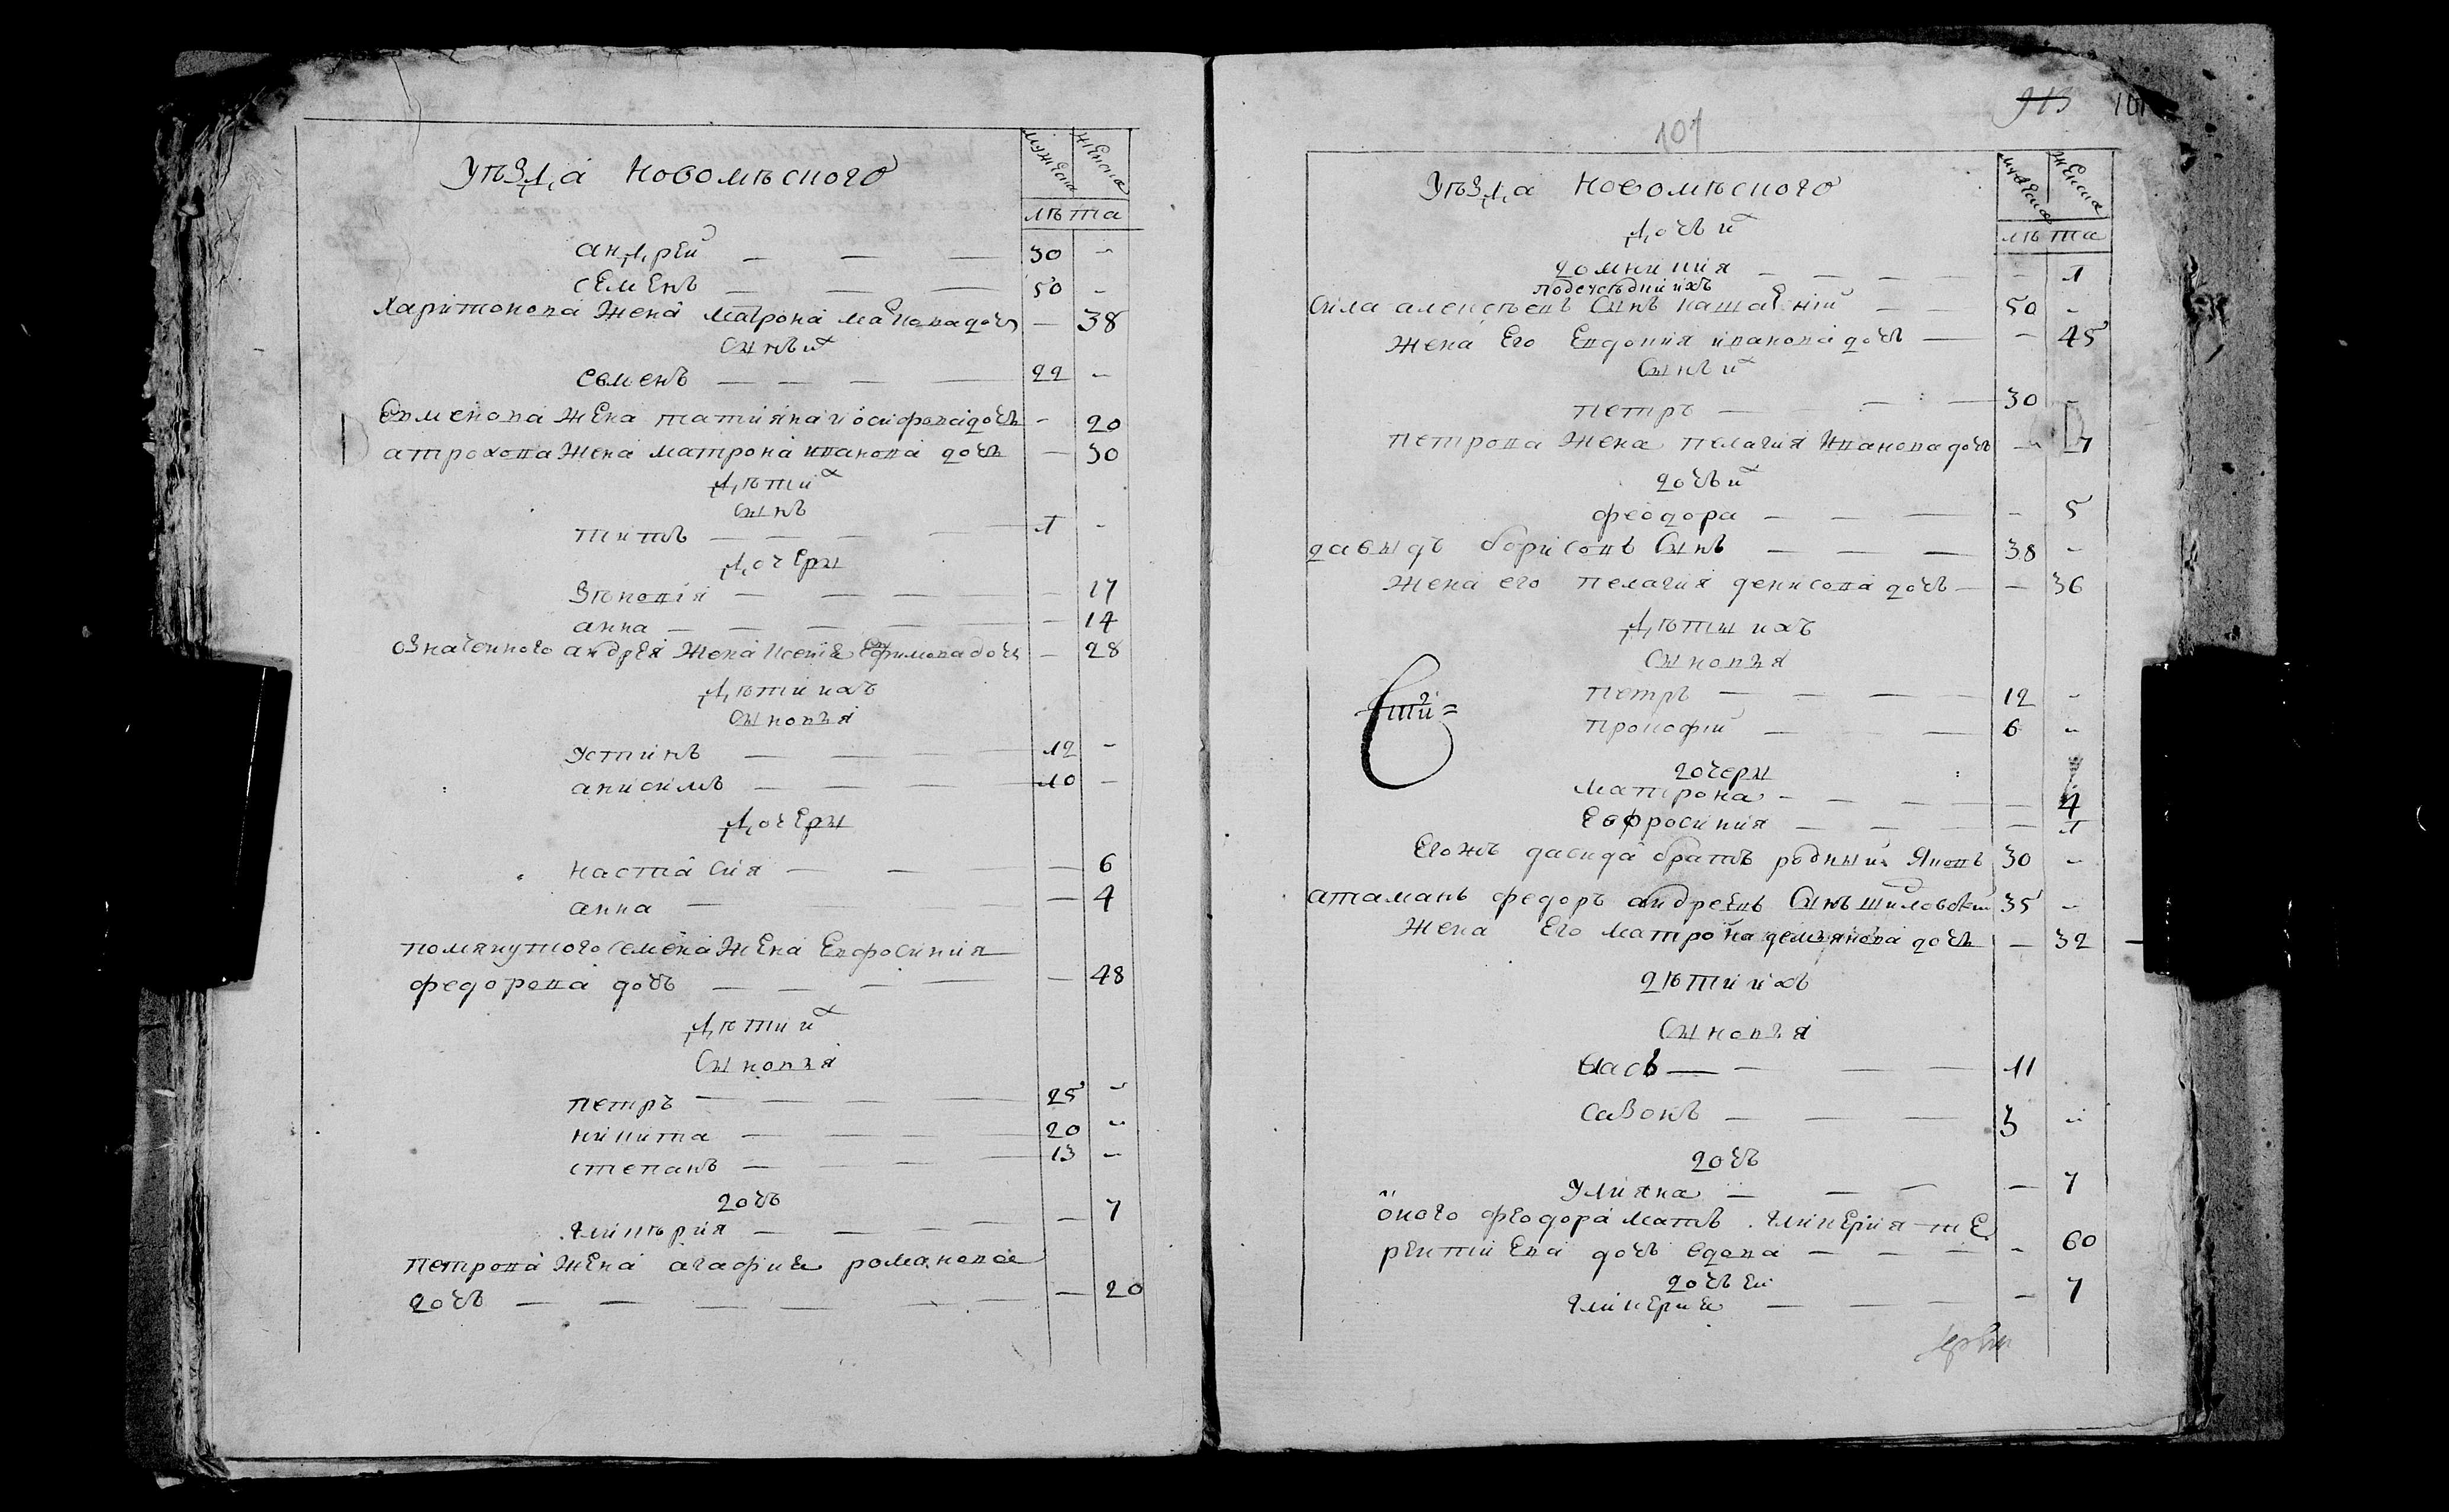 Уѣзда Новомѣского
мужеска
женска
лѣта
андрей — — — 30 –
семенъ — — — 50 –
Харитонова жена матрона маковадочь — 38
Сынъ их
семенъ — — — 22 –
Семенова жена татияна иосифовадочь – 20
жена матрона иванова дочь — 30
дѣти их
Сынъ
титъ — — — 1 –
дочери
Зѣновія — — — — 17
анна — — — — 14
означенного андрея жена Ксения Ефимовадочь — 28
дѣти ихъ
Сыновья
устинъ — — — 12 –
анисимъ — — — 10 –
дочери
настасия — — — — 6
анна — — — 4
помянутого семена жена Евфросиния
федорова дочь — — — — 48
дѣти их
Сыновья
петръ — — — 25 –
никита — — — 20 –
степанъ — — — 13 –
дочь
гликѣрия — — — — 7
петрова жена агафия романова
дочь — — — — 20
913
101
107
Уѣзда Новомѣского
мужеска
женска
лѣта
дочь их
домникия — — — – 1
подсусѣдки ихъ
Сила алексѣевъ Сынъ — — 50 –
жена Его Евдокия иванова дочь — – 45
Сынъ их
петръ — — — 30 –
петрова жена пелагия Ивановадочь – 7
дочь их
феодора — — — – 5
давыдъ борисовъ Сынъ — — — 38 –
жена его пелагия денисова дочь — – 36
дѣти ихъ
Сыновья
петръ — — — 12 –
прокофий — — 6 –
дочери
матрона – — — — 4
Евфросиния — — — — 1
Егожъ давида братъ родныи Яковъ 30 –
атаманъ федоръ андреевъ Сынъ шиловский 35 –
жена Его матрона демянова дочь — 32
дѣти ихъ
Сыновья
власъ — — — — 11
Савонъ — — — 3 –
дочь
улияна — — — — 7
оного феодора мать гликерия те
рентиева дочь вдова — — — – 60
дочь ей
гликерия — — — – 7